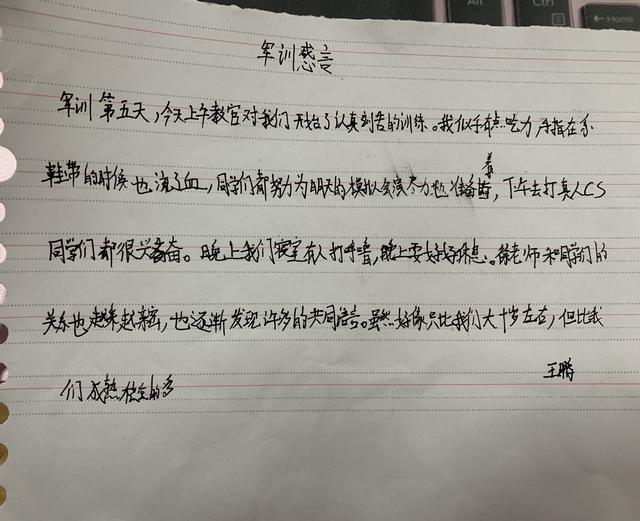 Alt
Ctrl
Home
军训感言
军训第五天，今天上午教官对我们开始了认真刻苦的训练。我似乎有点吃力，手指在系
鞋带的时候也流了血，同学们都努力为明天的模拟会演尽力地准备着，下午去打真人CS
同学们都很兴奋。晚上我们寝室有人打呼噜，晚上要好好休息。徐老师和同学们的
关系也越来越亲密，也逐渐发现许多的共同语言。虽然好像只比我们大十岁左右，但比我
们成熟稳重的多
王鹏